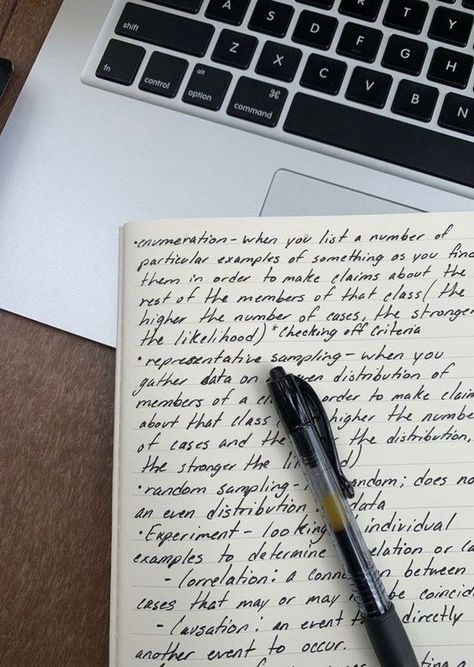 shift Z X C V B N
fn control alt option ⌘ command
A S D F T Y
G H
•enumeration - when you list a number of
particular examples of something as you find
them in order to make claims about the
rest of the members of that class (the
higher the number of cases, the stronger
the likelihood) *Checking off criteria
•representative sampling - when you
gather data on even distribution of
members of a order to make claims
about that class higher the number
of cases and the the distribution,
the stronger the
•random sampling - random; does not
an even distribution data
•Experiment - individual
examples to determine or
- Correlation: a between
cases that may or may be
- Causation: an event directly
another event to occur.